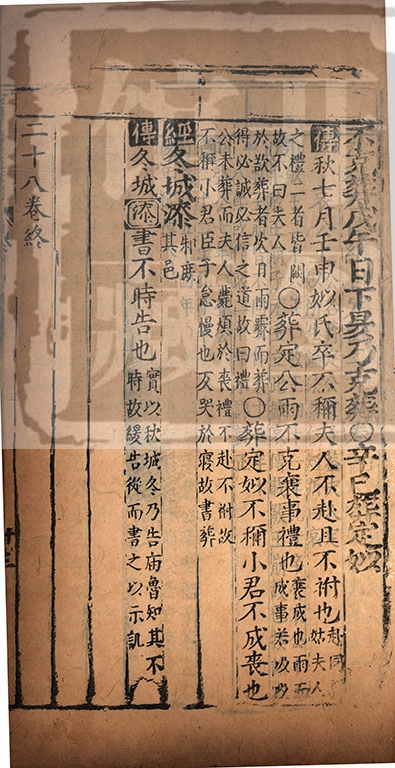 不克葬戊午日下昃乃克葬○辛巳葬定姒
傳秋七月壬申姒氏卒不稱夫人不赴且不祔也赴同祔姑夫人
之禮二者皆闕故不曰夫人○葬定公雨不克襄事禮也襄成也雨而成事若汲汲
於欲葬者次日雨霽而葬得必誠必信之道故曰禮○葬定姒不稱小君不成喪也
公未葬而夫人薨煩於喪禮不赴不祔故不稱小君臣子怠慢也反哭於寢故書葬
經冬城漆邾庶其邑
傳冬城漆書不時告也實以秋城冬乃告廟魯知其不時故緩告從而書之以示譏
二十八卷終